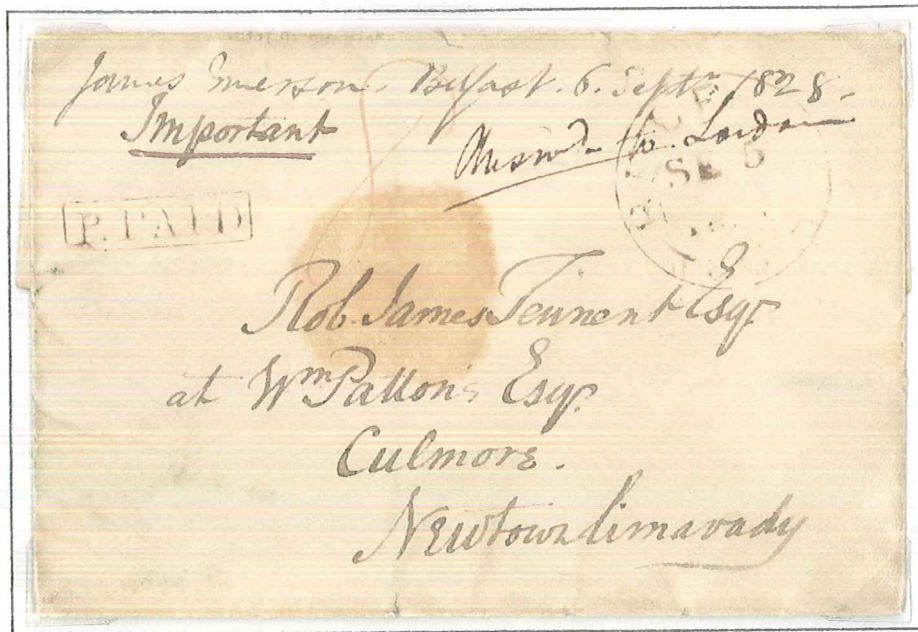 James Emerson. Belfast. 6. Septr. 1828.
Important
to London
SE 5
P. PAID
Rob. James Tennent Esqr
at Wm Patton's Esqr.
Culmore.
Newtownlimavady